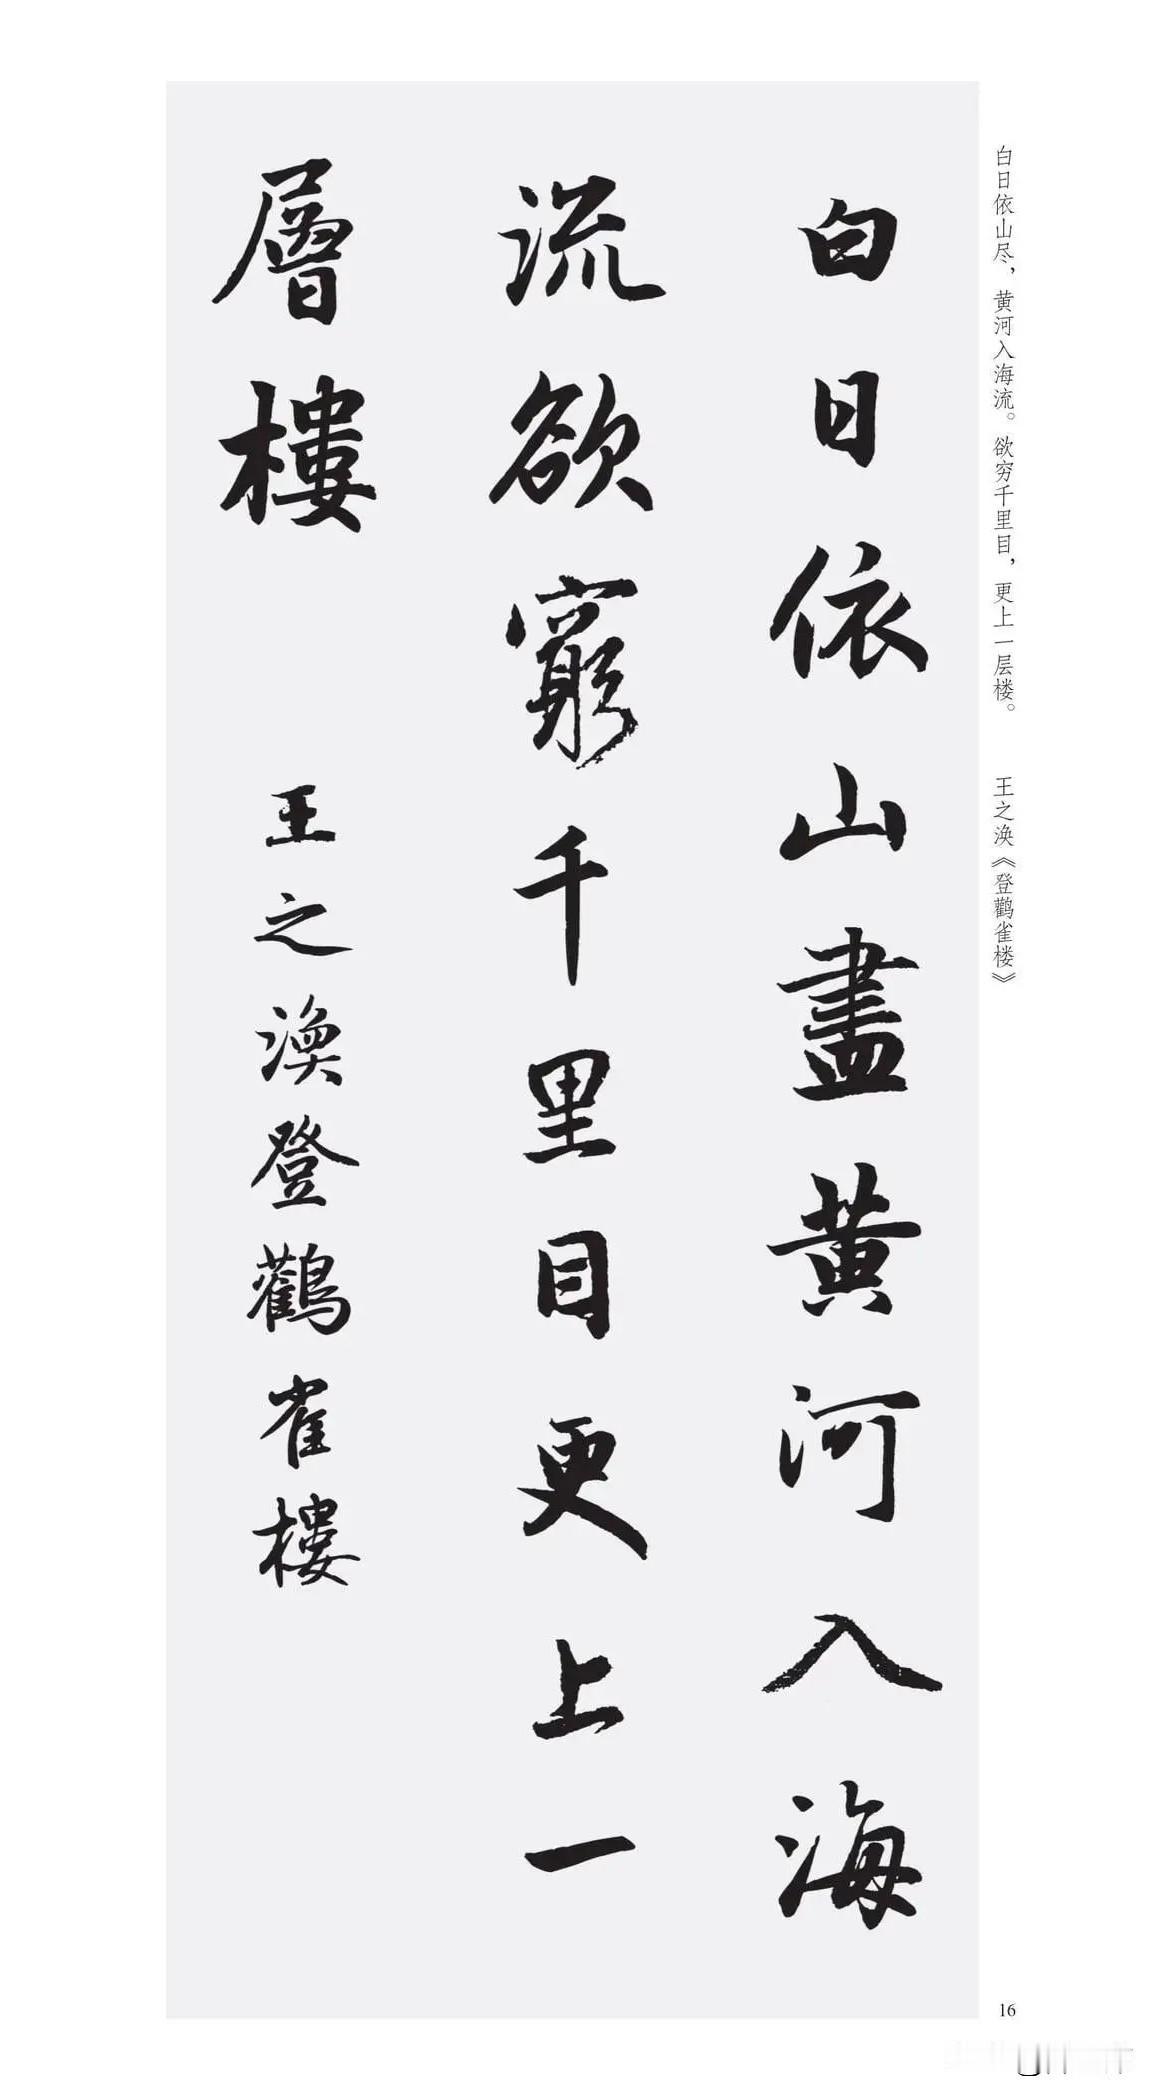 白日依山尽，黄河入海流。欲穷千里目，更上一层楼。 王之涣《登鹳雀楼》
白日依山盡黄河入海
流欲窮千里目更上一
層樓
王之渙登鸛雀樓
16